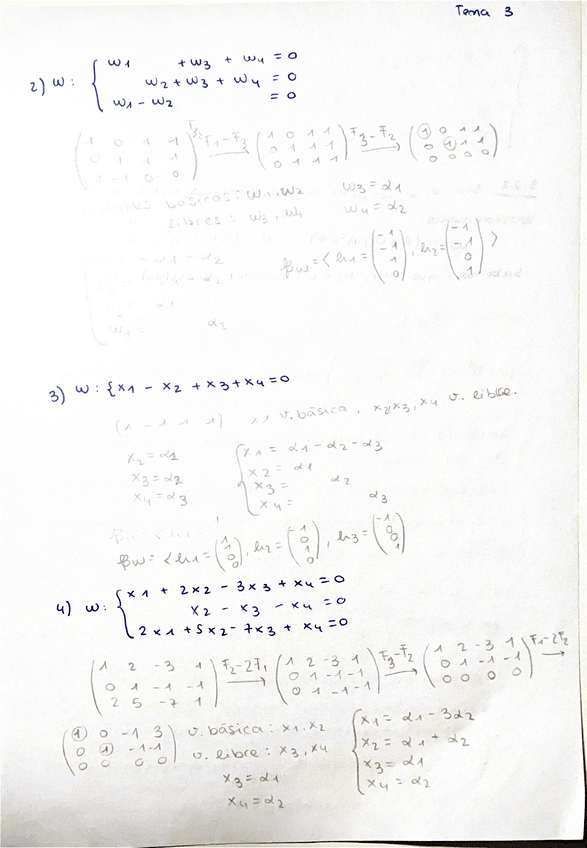 Tema 3
2) W: { w1 + w3 + w4 = 0
w2 + w3 + w4 = 0
w1 - w2 = 0
(1 0 1 1 / 0 1 1 1 / 1 -1 0 0) F3-F1 → (1 0 1 1 / 0 1 1 1 / 0 1 1 1) F3-F2 → (1 0 1 1 / 0 1 1 1 / 0 0 0 0)
básicas: w1, w2 w3 = α1
libres: w3, w4 w4 = α2
βw = < h1 = (-1 / -1 / 1 / 0), h2 = (-1 / -1 / 0 / 1) >
3) W: { x1 - x2 + x3 + x4 = 0
(1 -1 1 1) x1 v. básica, x2 x3, x4 v. libre.
x2 = α1 { x1 = α1 - α2 - α3
x3 = α2 x2 = α1
x4 = α3 x3 = α2
x4 = α3
βw = < h1 = (1 / 1 / 0 / 0), h2 = (-1 / 0 / 1 / 0), h3 = (-1 / 0 / 0 / 1)
4) W: { x1 + 2x2 - 3x3 + x4 = 0
x2 - x3 - x4 = 0
2x1 + 5x2 - 7x3 + x4 = 0
(1 2 -3 1 / 0 1 -1 -1 / 2 5 -7 1) F2-2F1 → (1 2 -3 1 / 0 1 -1 -1 / 0 1 -1 -1) F3-F2 → (1 2 -3 1 / 0 1 -1 -1 / 0 0 0 0) F1-2F2 →
(1 0 -1 3 / 0 1 -1 -1 / 0 0 0 0) v. básica: x1, x2 { x1 = α1 - 3α2
v. libre: x3, x4 x2 = α1 + α2
x3 = α1 x3 = α1
x4 = α2 x4 = α2